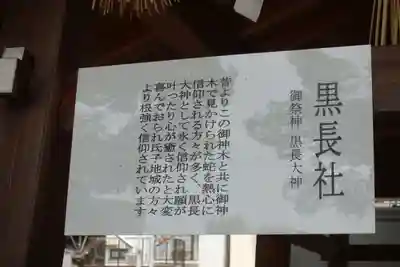 黒長社
御祭神 黒長大神
昔よりこの御神木と共に御神
木で見かけられた蛇を熱心に
信仰される方々が多く、黒長
大神として永く信仰され願が
叶ったり心が癒されたと大変
喜んでおられ氏子地域の方々
より根強く信仰されています